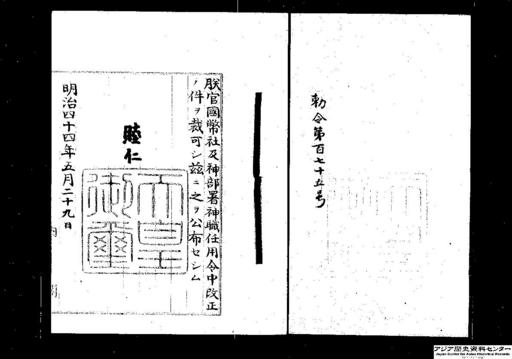 勅令第百七十五号
朕官國幣社及神部署神職任用令中改正
ノ件ヲ裁可シ茲ニ之ヲ公布セシム
睦仁
天皇御璽
明治四十四年五月二十九日
アジア歴史資料センター
Japan Center for Asian Historical Records